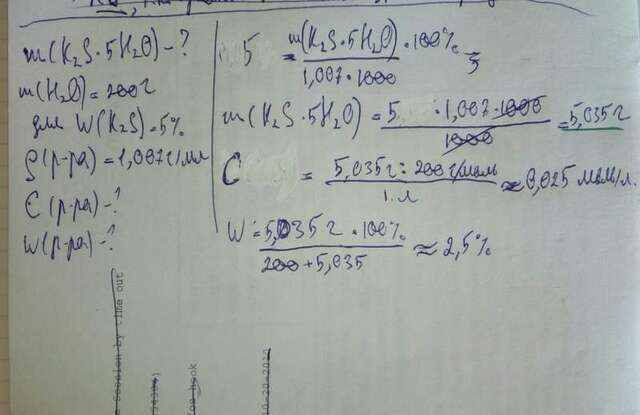 m(K₂S·5H₂O) - ?
m(H₂O) = 200г
для W(K₂S) = 5%
ρ(р-ра) = 1,007 г/мл
C(р-ра) - ?
W(р-ра) - ?
5 = m(K₂S·5H₂O)·100% / 1,007·1000
m(K₂S·5H₂O) = 5 · 1,007·1000 / 1000 = 5,035г
C = 5,035г : 200 г/моль / 1 л ≈ 0,025 моль/л.
W = 5,035г · 100% / 200 + 5,035 ≈ 2,5%
e book